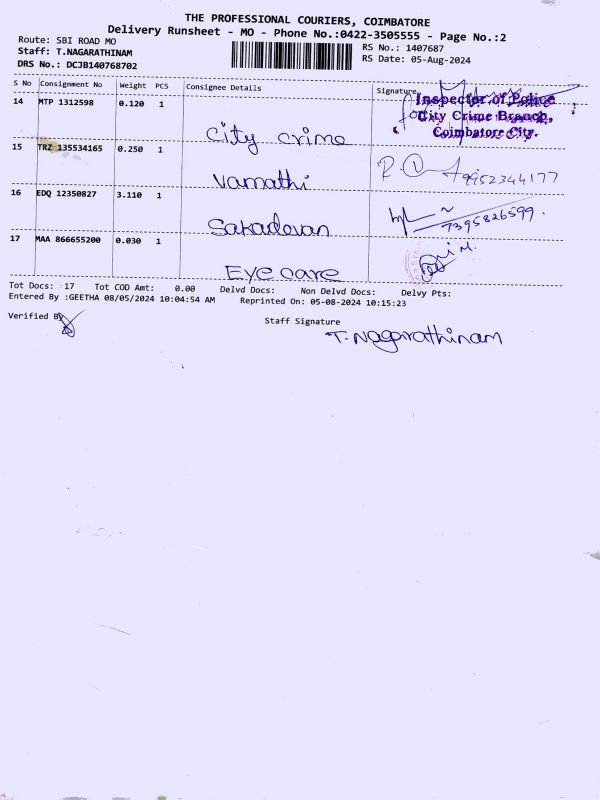 THE PROFESSIONAL COURIERS, COIMBATORE
Delivery Runsheet - MO - Phone No.:0422-3505555 - Page No.:2
Route: SBI ROAD MO
Staff: T.NAGARATHINAM
DRS No.: DCJB140768702
RS No.: 1407687
RS Date: 05-Aug-2024
S No Consignment No Weight PCS Consignee Details Signature
14 MTP 1312598 0.120 1
City crime
Inspector of Police
City Crime Branch,
Coimbatore City.
15 TRZ 135534165 0.250 1
Vamathi
9952344177
16 EDQ 12350827 3.110 1
Sakadevan
7395826599.
17 MAA 866655200 0.030 1
Eye care
Tot Docs: 17 Tot COD Amt: 0.00 Delvd Docs: Non Delvd Docs: Delvy Pts:
Entered By :GEETHA 08/05/2024 10:04:54 AM Reprinted On: 05-08-2024 10:15:23
Verified By
Staff Signature
T. Nagarathinam